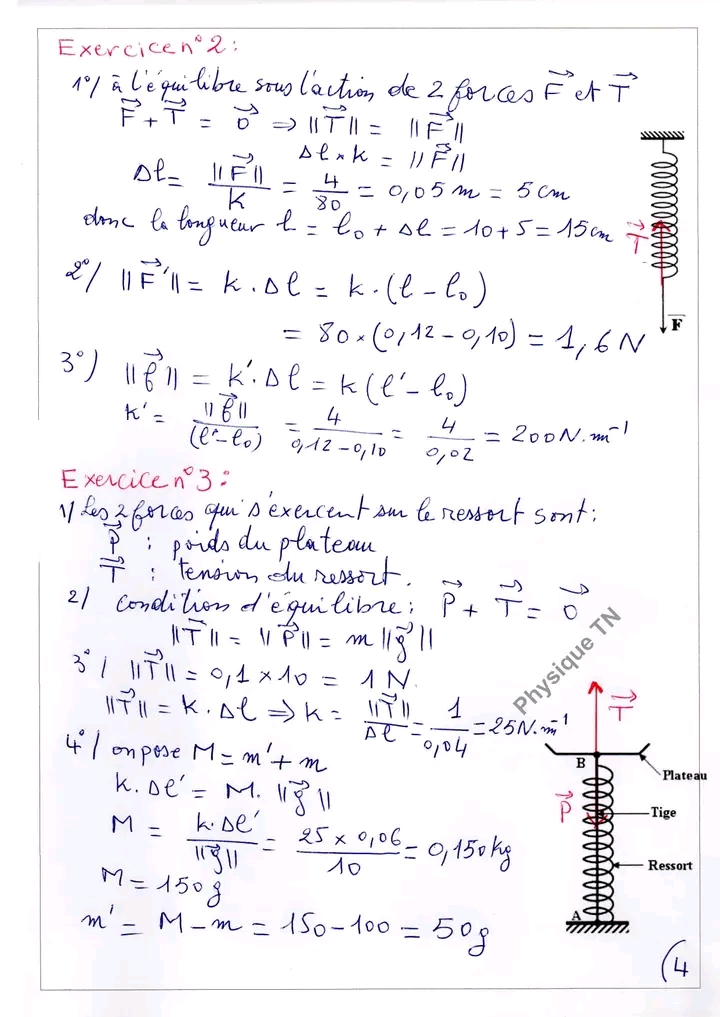 Exercice n° 2 :
1°/ à l'équilibre sous l'action de 2 forces F⃗ et T⃗
F⃗ + T⃗ = 0⃗ ⇒ ||T⃗|| = ||F⃗||
Δl × k = ||F⃗||
Δl = ||F⃗|| / k = 4 / 80 = 0,05 m = 5 cm
donc la longueur l = l₀ + Δl = 10 + 5 = 15 cm
T⃗
F
2°/ ||F⃗'|| = k . Δl = k . (l - l₀)
= 80 × (0,12 - 0,10) = 1,6 N
3°) ||f⃗|| = k' . Δl = k (l' - l₀)
k' = ||f⃗|| / (l' - l₀) = 4 / 0,12 - 0,10 = 4 / 0,02 = 200 N.m⁻¹
Exercice n° 3 :
1/ Les 2 forces qui s'exercent sur le ressort sont :
P⃗ : poids du plateau
T⃗ : tension du ressort.
2/ condition d'équilibre : P⃗ + T⃗ = 0⃗
||T⃗|| = ||P⃗|| = m ||g⃗||
3°/ ||T⃗|| = 0,1 × 10 = 1 N
||T⃗|| = k . Δl ⇒ k = ||T⃗|| / Δl = 1 / 0,04 = 25 N.m⁻¹
4°/ on pose M = m' + m
k . Δl' = M . ||g⃗||
M = k . Δl' / ||g⃗|| = 25 × 0,06 / 10 = 0,150 kg
M = 150 g
m' = M - m = 150 - 100 = 50 g
Physique TN
T⃗
B
Plateau
P⃗
Tige
Ressort
A
(4